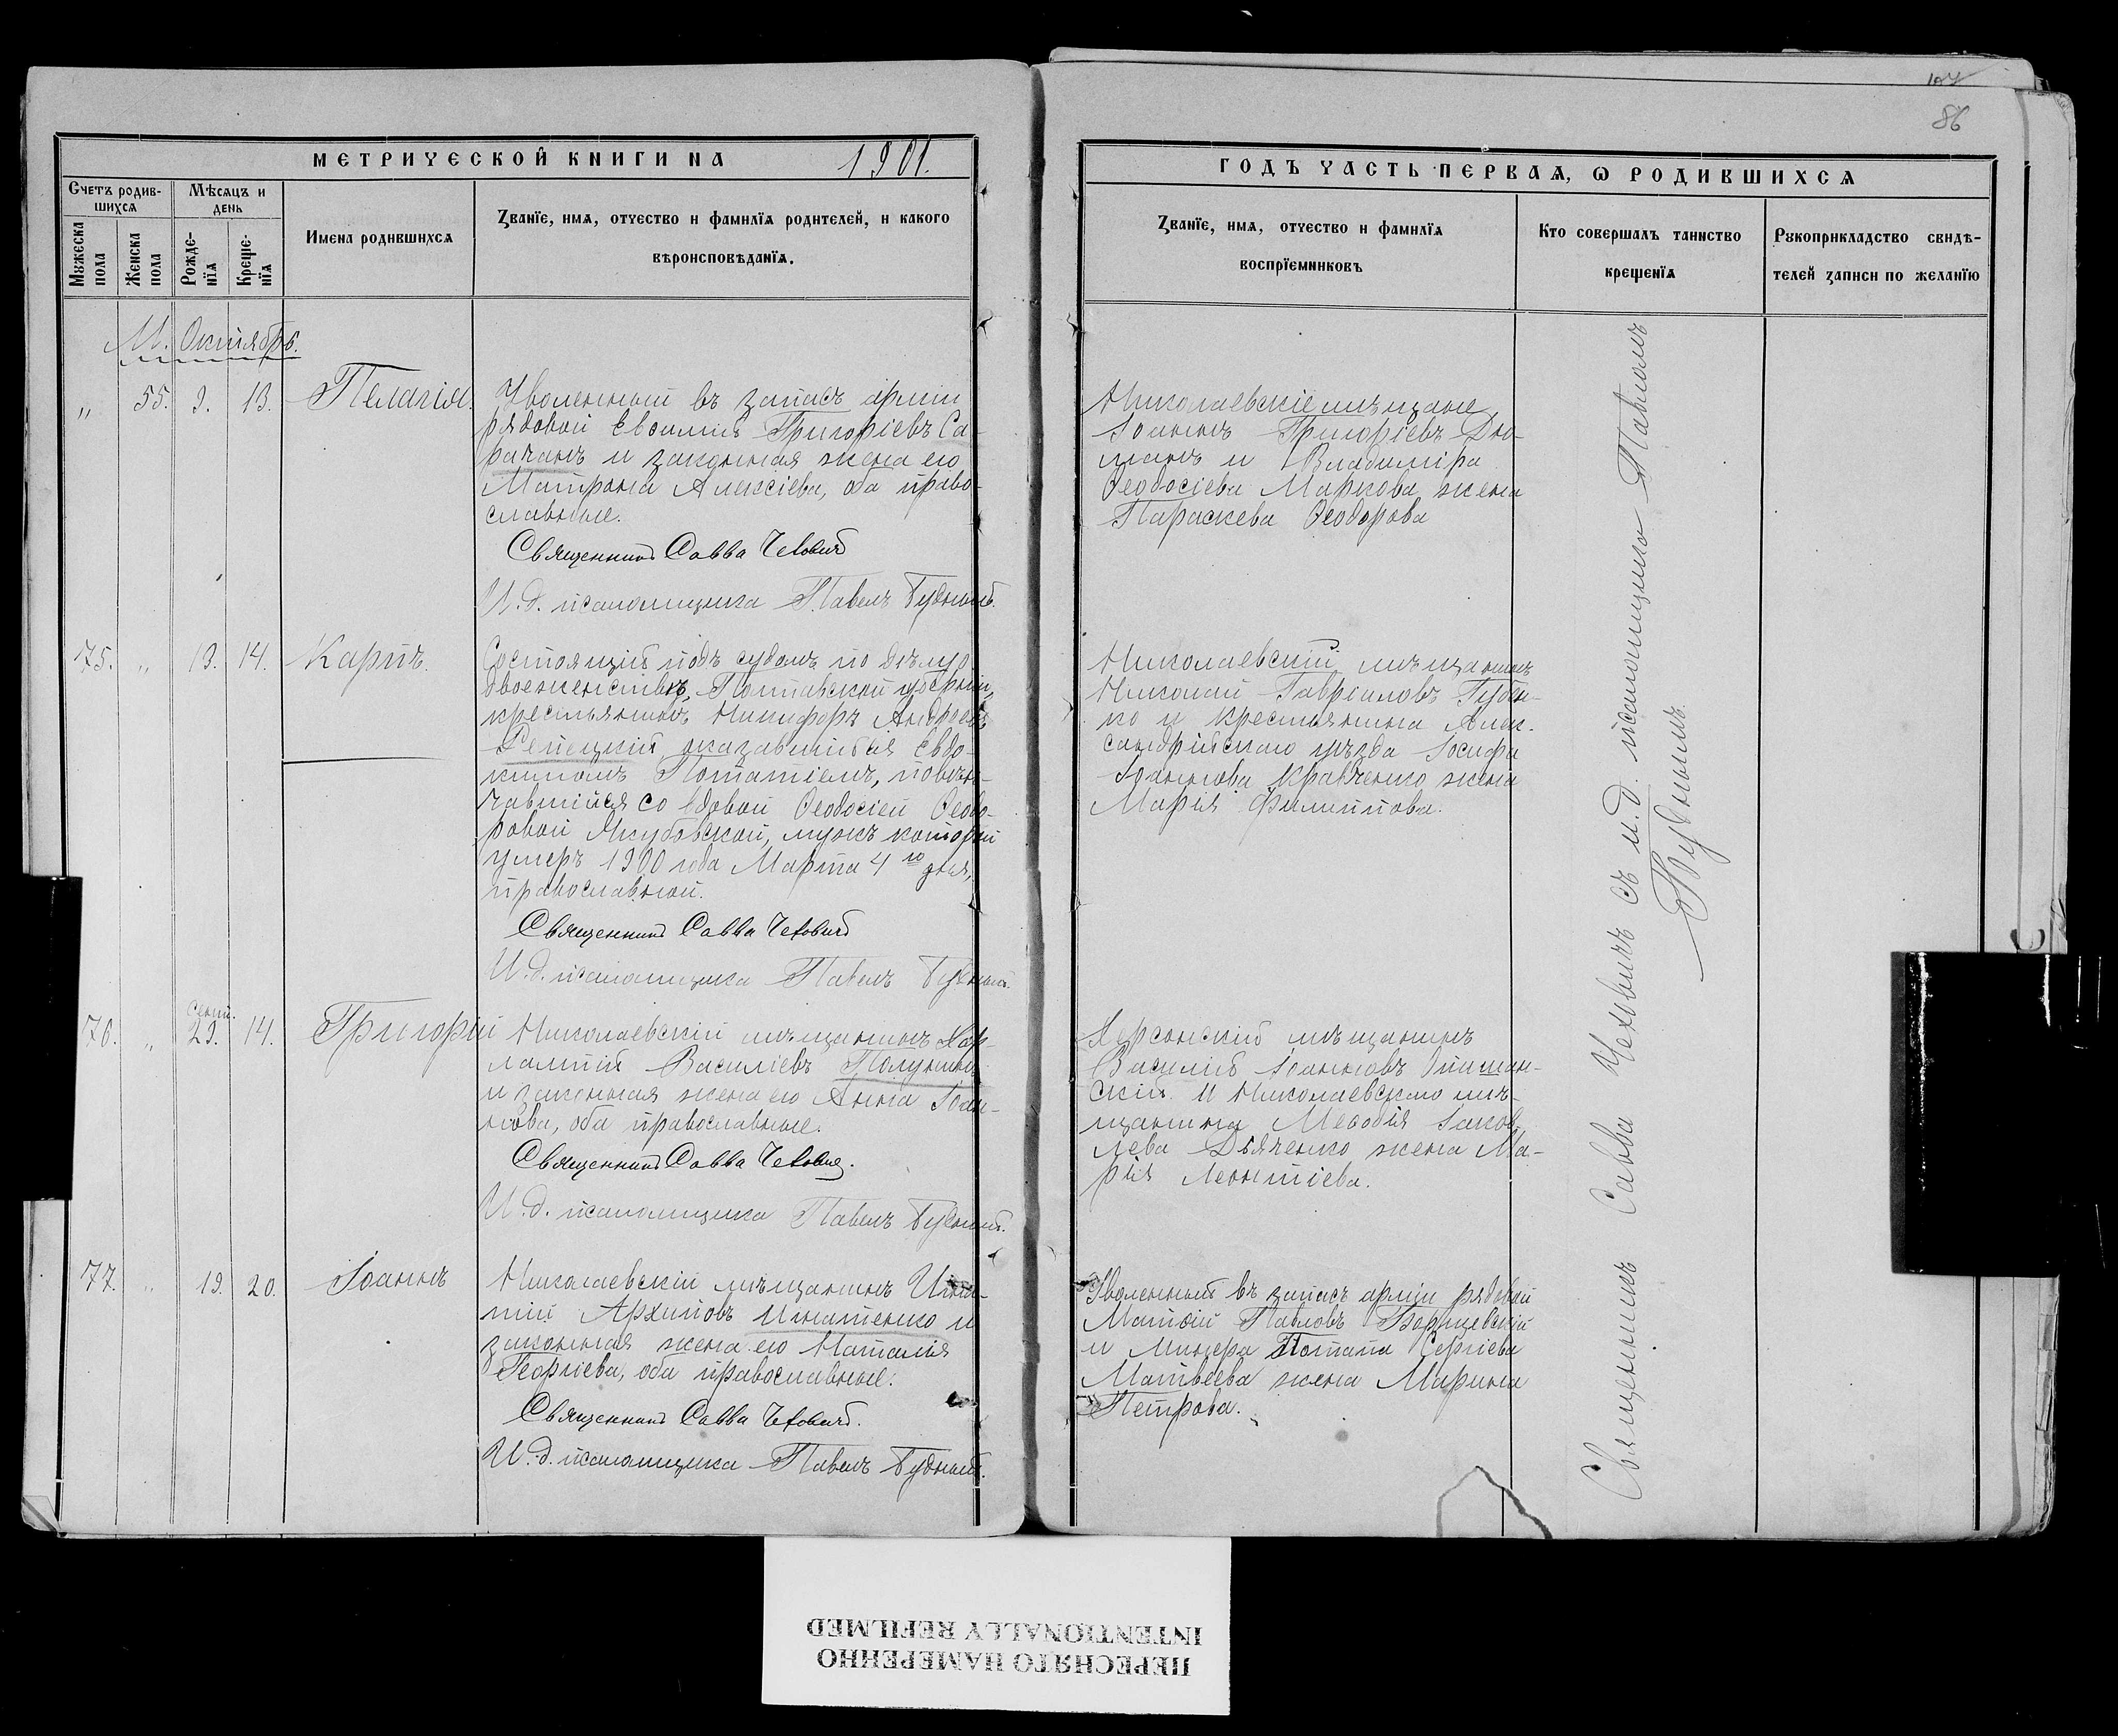 107
86
МЕТРИЧЕСКОЙ КНИГИ НА 1901.
Счетъ родив-
шихся
Мѣсяцъ и
день
Мужеска
пола
Женска
пола
Рожде-
нїя
Креще-
нїя
Имена родившихся
Званїе, имя, отчество и фамилїя родителей, и какого
вѣроисповѣданїя.
ГОДЪ ЧАСТЬ ПЕРВАЯ, Ѡ РОДИВШИХСЯ
Званїе, имя, отчество и фамилїя
воспрїемниковъ
Кто совершалъ таинство
крещенїя
Рукоприкладство свидѣ-
телей записи по желанїю
М. Октябрь.
" 55. 9. 13. Пелагія.
Уволенный въ запасъ арміи
рядовой Евѳимій Григоріевъ Са-
рачанъ и законная жена его
Матрона Алексіева, оба право-
славные.
Священникъ Савва Чехович
И.д. псаломщика Павелъ Будный.
Николаевскіе мѣщане
Іоаннъ Григоріевъ Дю-
манъ и Владиміра
Ѳеодосіева Маркова жена
Параскева Ѳеодорова
75. " 13. 14. Карпъ.
Состоящій подъ судомъ по дѣлу о
двоеженствѣ, Полтавской губерніи,
крестьянинъ Никифоръ Андреевъ
Репецкій, оказавшійся Евдо-
кимомъ Потапіемъ, повѣн-
чавшійся со вдовой Ѳеодосіей Ѳеодо-
ровой Якубовской, мужъ которой
умеръ 1900 года Марта 4 го дня,
православной.
Священникъ Савва Чехович
И.д. псаломщика Павелъ Будный.
Николаевскій мѣщанинъ
Николай Гавріиловъ Губен-
ко и крестьянина Алек-
сандрійскаго уѣзда Іосифа
Іоаннова Кравченко жена
Марія Филиппова.
76. " Сент. 29. 14. Григорій
Николаевскій мѣщанинъ Хар-
лампій Василіевъ Полунинъ
и законная жена его Анна Іоан-
нова, оба православные.
Священникъ Савва Чехович.
И.д. псаломщика Павелъ Будный.
Херсонскій мѣщанинъ
Василій Іоанновъ Опишан-
скій и Николаевскаго мѣ-
щанина Меѳодія Іаков-
лева Дьяченко жена Ма-
рія Леонтіева.
77. " 19. 20. Іоаннъ
Николаевскій мѣщанинъ Игна-
тій Архиповъ Игнатенко и
законная жена его Наталія
Георгіева, оба православные.
Священникъ Савва Чехович.
И.д. псаломщика Павелъ Будный.
Уволенный въ запасъ арміи рядовой
Матѳій Павловъ Борщевскій
и Минера Потапа Сергіева
Матвѣева жена Марина
Петрова.
Священникъ Савва Чеховичъ съ и.д. псаломщика Павломъ
Буднымъ.
ПЕРЕСНЯТО НАМЕРЕННО
INTENTIONALLY REFILMED